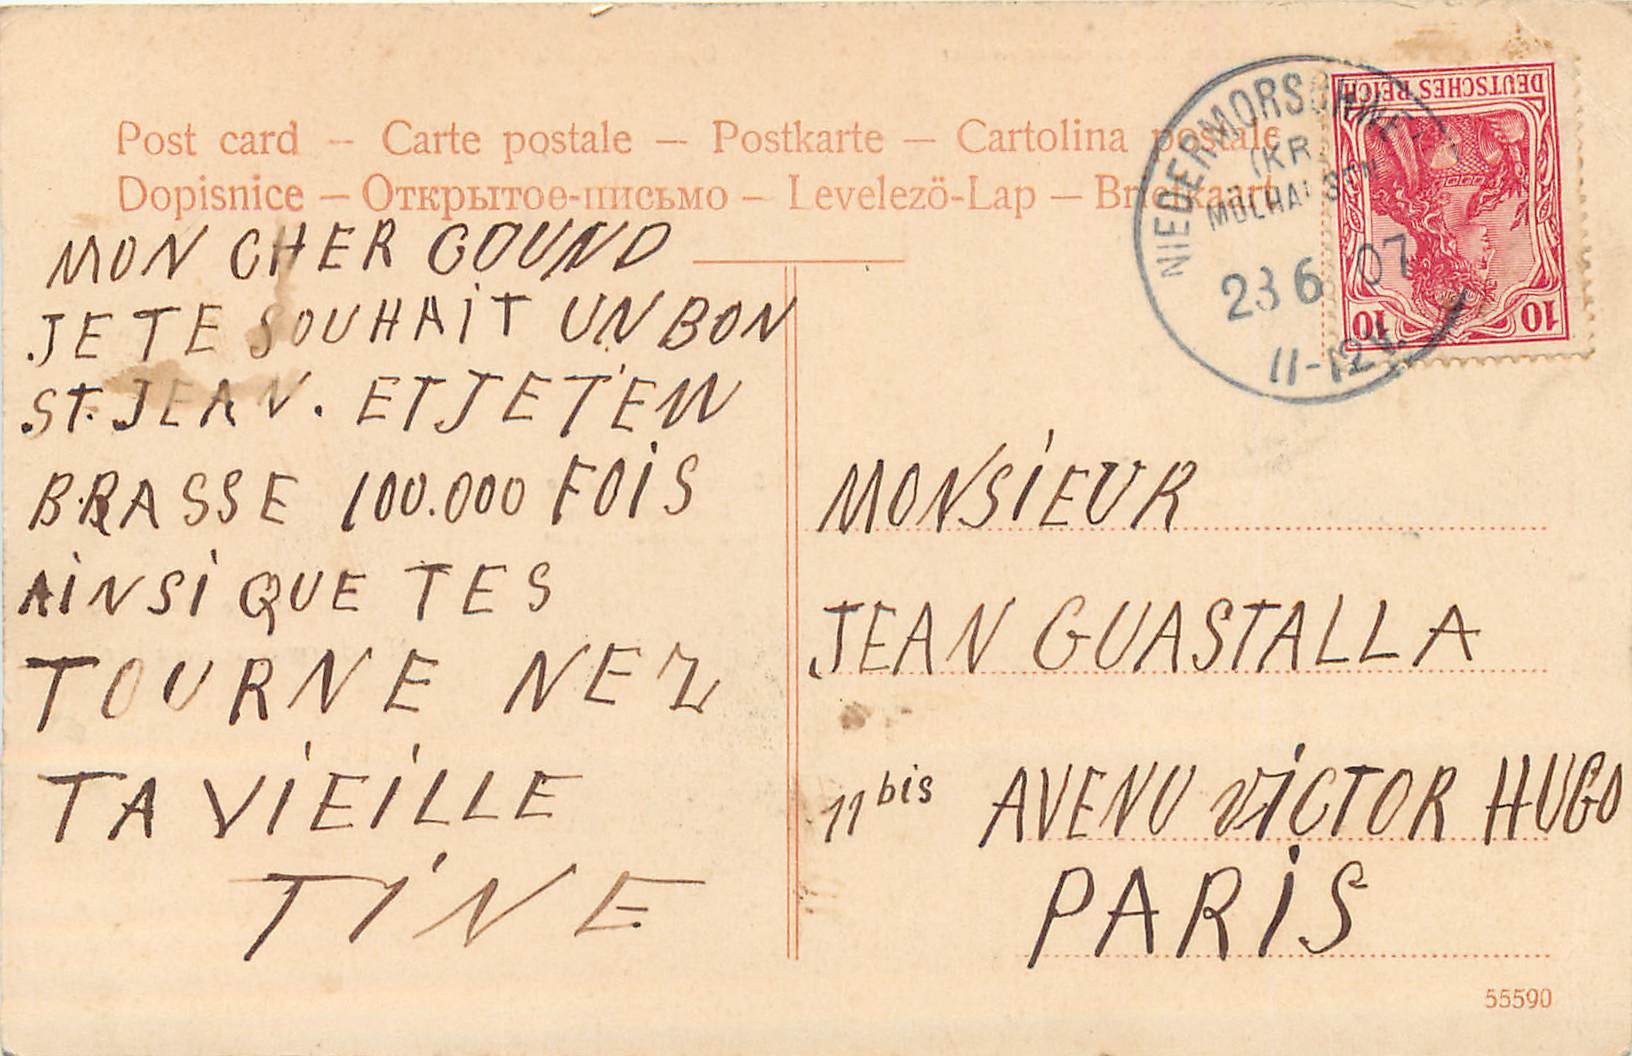 Post card – Carte postale – Postkarte – Cartolina postale
Dopisnice – Открытое-письмо – Levelezö-Lap – Briefkaart
NIEDERMORSCHWEILER
(KR.
MÜLHAUSEN
23 6 07
11-12V.
DEUTSCHES REICH
10 10
MON CHER GOUND
JE TE SOUHAIT UN BON
ST. JEAN. ET JE T'EM
BRASSE 100.000 FOIS
AINSI QUE TES
TOURNE NEZ
TA VIEILLE
TINE
MONSIEUR
JEAN GUASTALLA
11 bis AVENU VICTOR HUGO
PARIS
55590